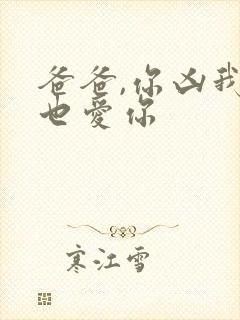 爸爸,你凶我
也爱你
寒江雪